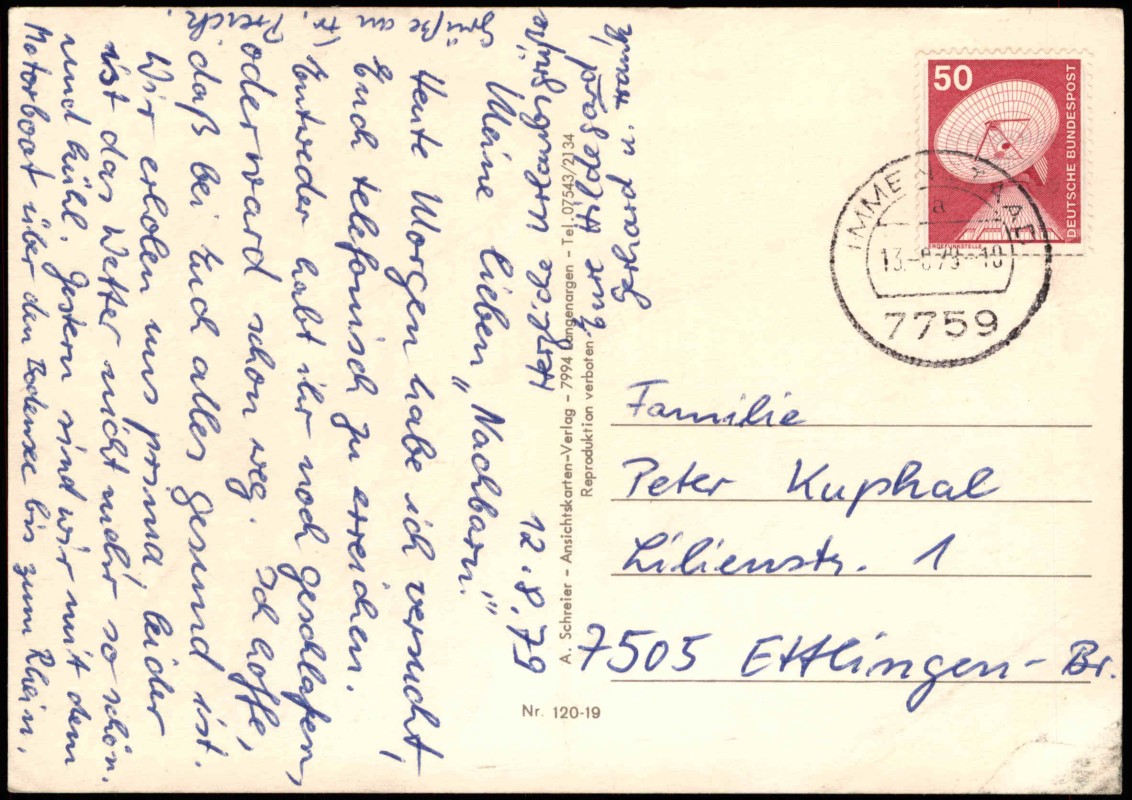 12.8.79
Meine lieben „Nachbarn“
Heute Morgen habe ich versucht,
Euch telefonisch zu erreichen.
Entweder habt ihr noch geschlafen,
oder ward schon weg. Ich hoffe,
daß bei Euch alles gesund ist.
Wir erholen uns prima, leider
ist das Wetter nicht mehr so schön
und kühl. Gestern sind wir mit dem
Motorboot über den Bodensee bis zum Rhein.
Herzliche Urlaubsgrüße
Eure Hildegard,
Gerhard u. Frank
Grüße an
Fr.
A. Schreier - Ansichtskarten-Verlag - 7994 Langenargen - Tel. 07543/2134
Reproduktion verboten
Nr. 120-19
50
DEUTSCHE BUNDESPOST
ERDEFUNKSTELLE
IMMENSTAAD
a
13.-8.79.-10
7759
Familie
Peter Kuphal
Lilienstr. 1
7505 Ettlingen-Br.